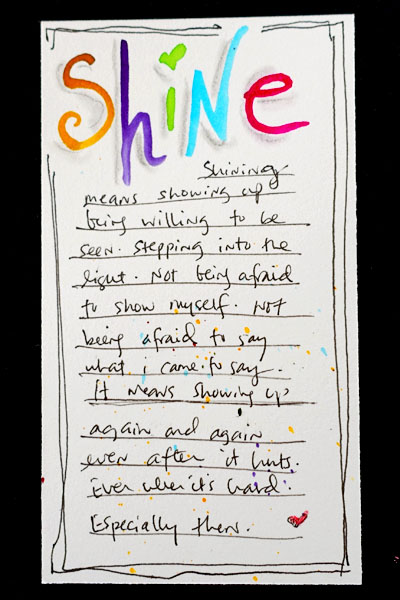 ShiNe
Shining
means showing up
being willing to be
seen. Stepping into the
light. Not being afraid
to show myself. Not
being afraid to say
what i came to say.
It means showing up
again and again
even after it hurts.
Even when it's hard.
Especially then.